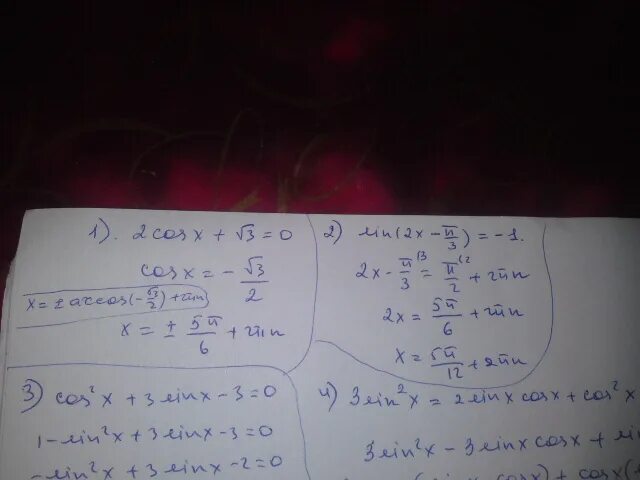 1). 2cosx + √3 = 0
cosx = - √3/2
x = ± arccos(-√3/2) + 2πn
x = ± 5π/6 + 2πn
2) sin(2x - π/3) = -1.
2x - π/3 = π/2 + 2πn
2x = 5π/6 + 2πn
x = 5π/12 + 2πn
3) cos²x + 3sinx - 3 = 0
1 - sin²x + 3sinx - 3 = 0
-sin²x + 3sinx - 2 = 0
4) 3sin²x = 2sinx cosx + cos²x
3sin²x - 3sinx cosx + sin